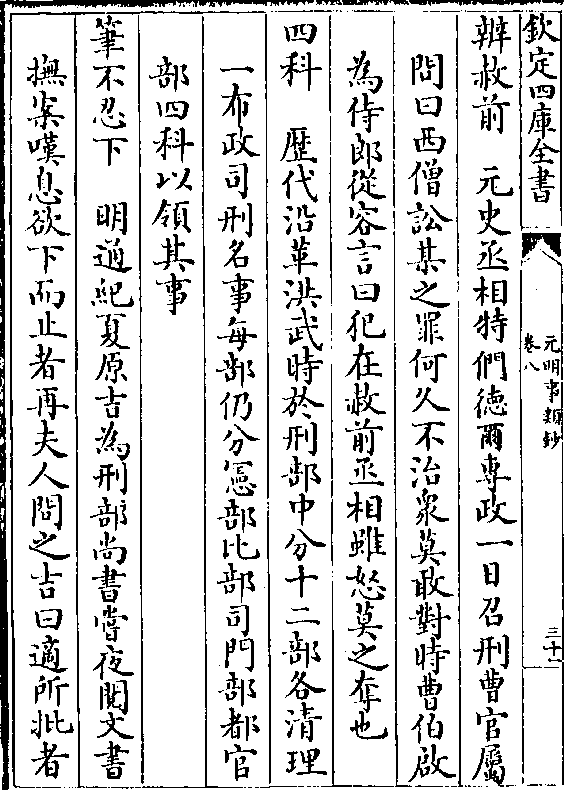 欽定四庫全書
元明事類鈔
卷八
三十一
辨赦前　元史丞相特們德爾專政一日召刑曹官屬
問曰西僧訟某之罪何久不治衆莫敢對時曹伯啟
為侍郎從容言曰犯在赦前丞相雖怒莫之奪也
四科　歴代沿革洪武時於刑部中分十二部各清理
一布政司刑名事每部仍分憲部比部司門部都官
部四科以領其事
筆不忍下　明通紀夏原吉為刑部尚書嘗夜閱文書
撫案嘆息欲下而止者再夫人問之吉曰適所批者